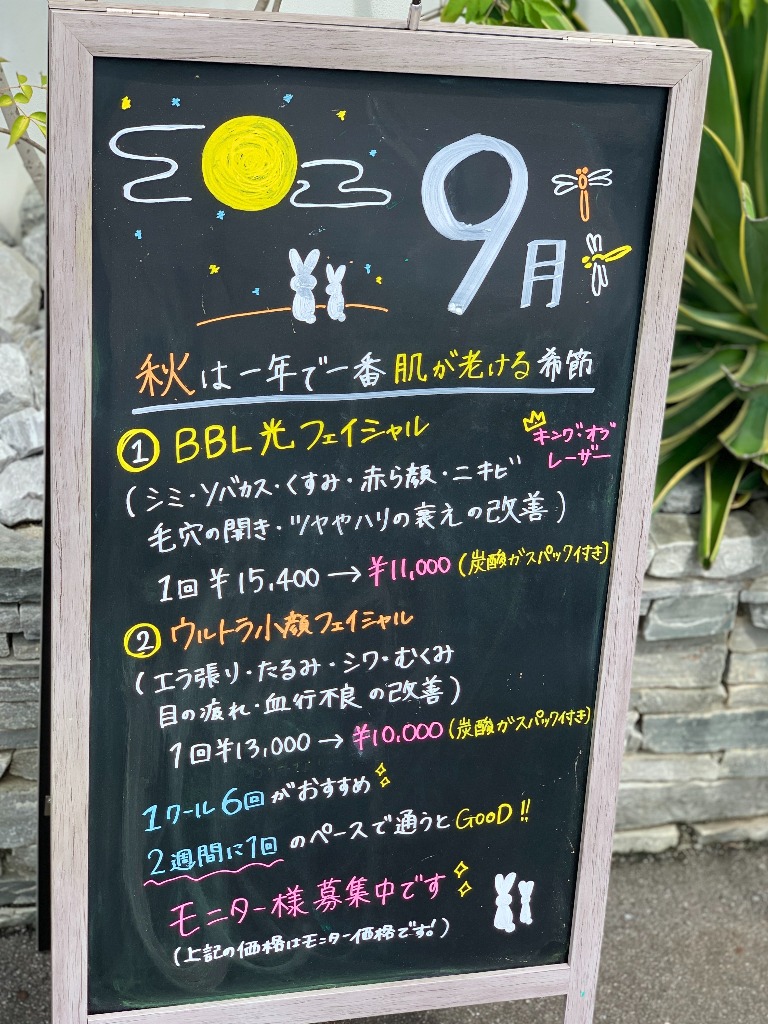 9月
秋は一年で一番肌が老ける希節
① BBL光フェイシャル
キング・オブ
レーザー
(シミ・ソバカス・くすみ・赤ら顔・ニキビ
毛穴の開き・ツヤやハリの衰えの改善)
1回 ¥15,400→¥11,000(炭酸ガスパック付き)
② ウルトラ小顔フェイシャル
(エラ張り・たるみ・シワ・むくみ
目の疲れ・血行不良の改善)
1回¥13,000→¥10,000(炭酸ガスパック付き)
1クール6回がおすすめ
2週間に1回のペースで通うとGOOD!!
モニター様募集中です
(上記の価格はモニター価格です!)